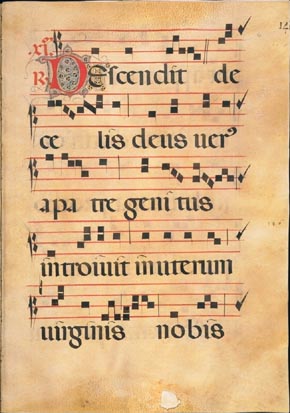 R Descendit de
celis deus verꝰ
a patre genitus
introiuit in uterum
uirginis nobis